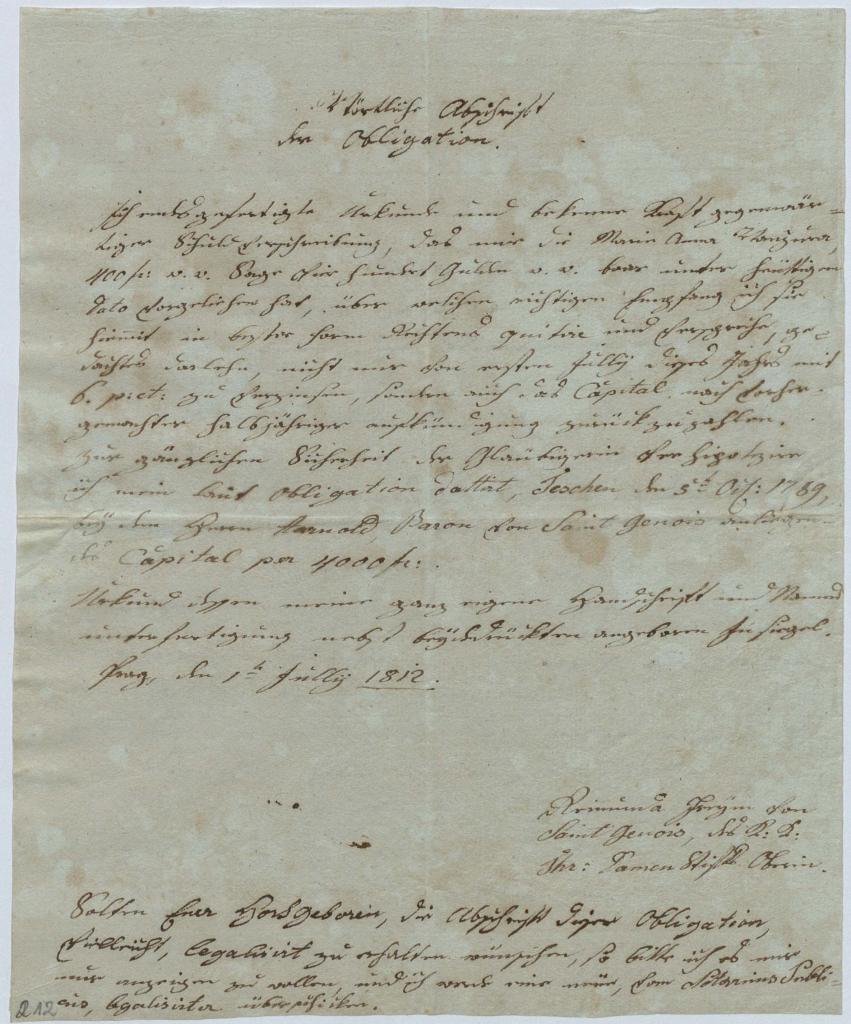 Wörtliche Abschrift
der Obligation.
Ich endesgefertigte Urkunde und bekenne Kraft gegenwär=
tiger Schuldverschreibung, das mir die Marie Anna
400 fr: w. w. Sage Vier hundert Gulden w. w. baar unter heutigen
dato vorgeliehen hat, über welchen richtigen Empfang ich sie
hiemit in bester form Rechtens quitire und verspreche, ge-
dachtes darlehn, nicht nur von ersten Jully dieses Jahrs mit
6. p:ct: zu verzinsen, sondern auch das Capital nach vorher-
gemachter halbjähriger aufkündigung zurückzuzahlen.
Zur gänzlichen Sicherheit der Glaubigerin verhipotzire
ich mein laut Obligation dattirt, Teschen den 5t 1789,
bey dem Herrn Arnold Baron von Saint Genois anliegen-
des Capital per 4000 fr:.
Urkund dessen meine ganz eigene Handschrift und Namens
unterfertigung nebst beygedrückten angebornen Insiegel.
Prag, den 1t Jully 1812.
Reimunda Freyin von
Saint Genois, des K: K:
Thr: Damen Stifts Oberin.
Solten Euer Hochgeboren, die Abschrift dieser Obligation,
Vielleicht, legalisirt zu erhalten wünschen, so bitte ich es mir
nur anzeigen zu wollen, und ich werde eine neüe, vom Notarius Publi-
cus, legalisirter überschicken.
212